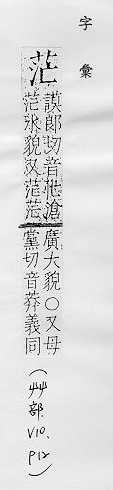 字彙
茫
謨郎切音忙滄
茫水貌又茫茫
廣大貌○又母
黨切音莽義同
(艸部, V10, P12)